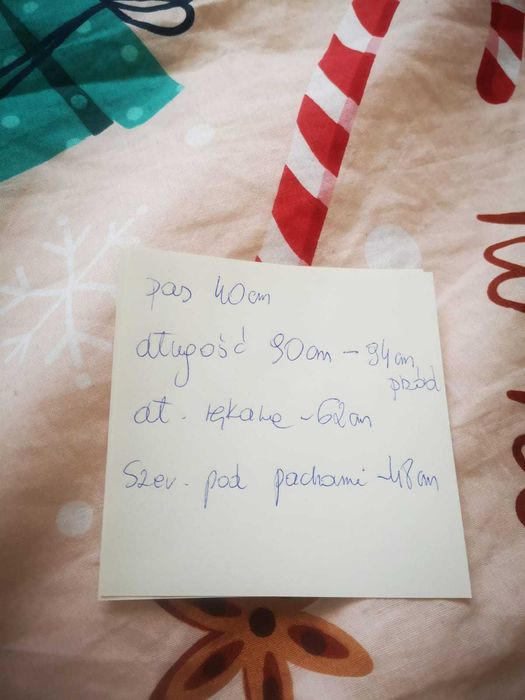 pas 40cm
długość 90cm - 94cm
przód
dł. rękawa - 62cm
szer. pod pachami - 48cm